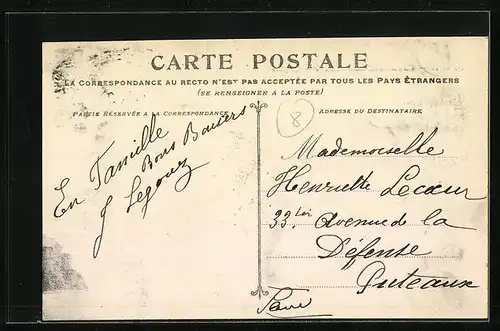 CARTE POSTALE
LA CORRESPONDANCE AU RECTO N'EST PAS ACCEPTÉE PAR TOUS LES PAYS ÉTRANGERS
(SE RENSEIGNER A LA POSTE)
PARTIE RÉSERVÉE A LA CORRESPONDANCE
ADRESSE DU DESTINATAIRE
8
En Famille
Bons Baisers
J Legouez
Mademoiselle
Henriette Lecœur
33 ter Avenue de la
Défense
Puteaux
Seine